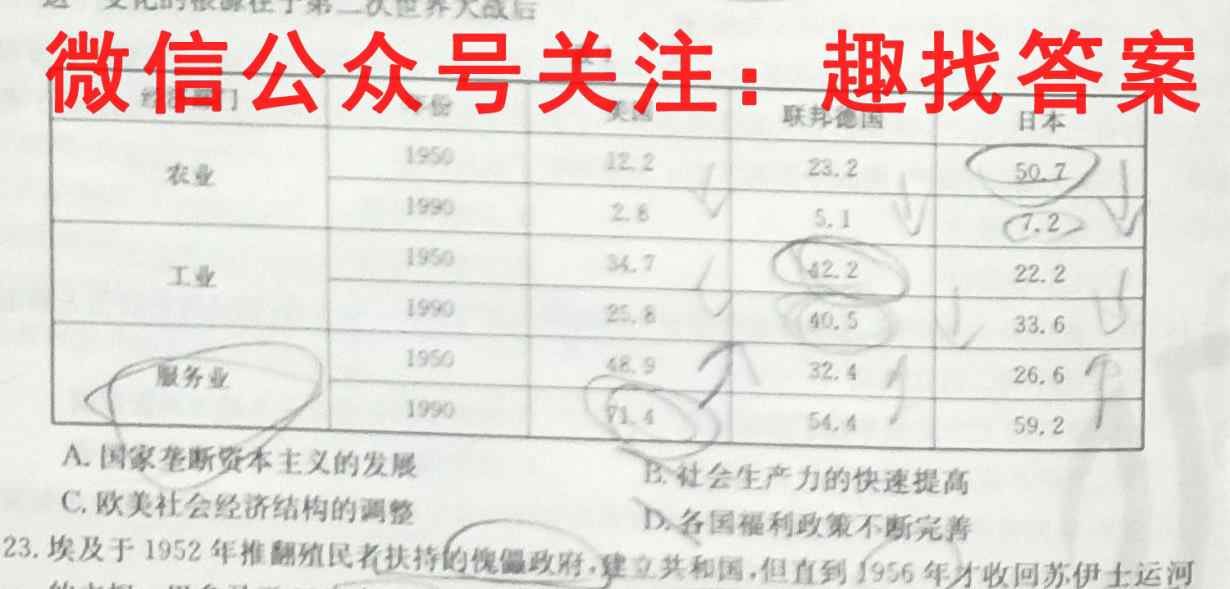 变化的根源在于第二次世界大战后
微信公众号关注：趣找答案
年份 美国 联邦德国 日本
农业 1950 12.2 23.2 50.7
1990 2.8 5.1 7.2
工业 1950 34.7 42.2 22.2
1990 25.8 40.5 33.6
服务业 1950 48.9 32.4 26.6
1990 71.4 54.4 59.2
A. 国家垄断资本主义的发展 B. 社会生产力的快速提高
C. 欧美社会经济结构的调整 D. 各国福利政策不断完善
23. 埃及于 1952 年推翻殖民者扶持的傀儡政府,建立共和国,但直到 1956 年才收回苏伊士运河